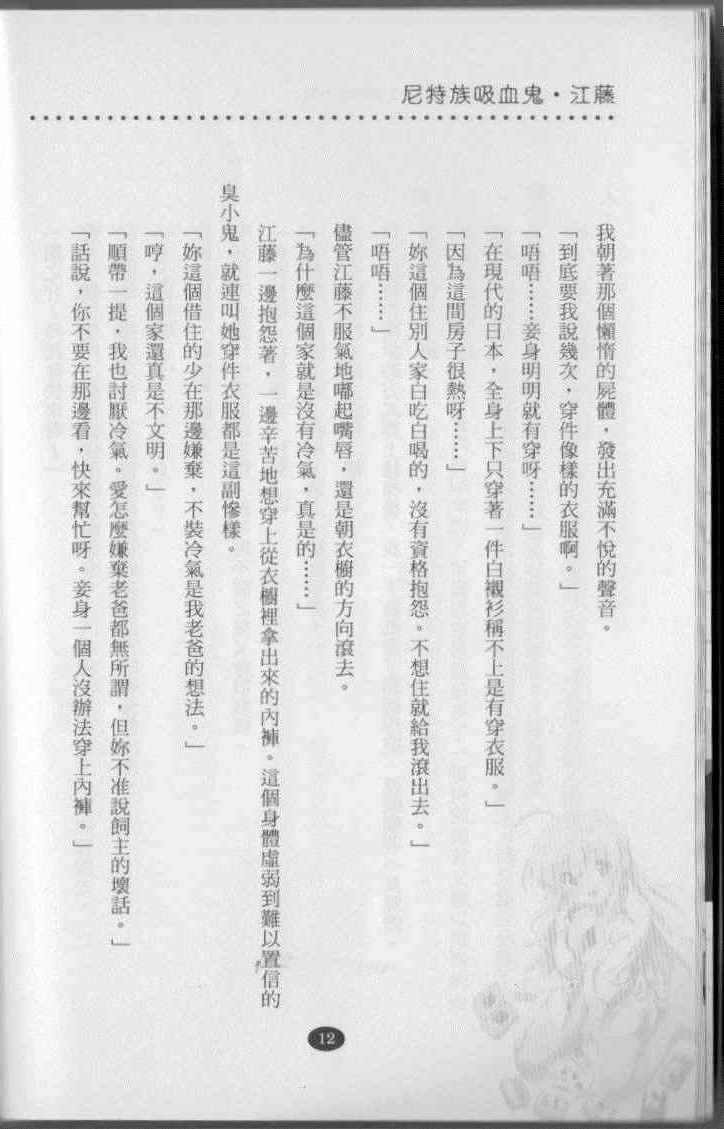 尼特族吸血鬼・江藤
我朝著那個懶惰的屍體，發出充滿不悅的聲音。
「到底要我說幾次，穿件像樣的衣服啊。」
「唔唔……妾身明明就有穿呀……」
「在現代的日本，全身上下只穿著一件白襯衫稱不上是有穿衣服。」
「因為這間房子很熱呀……」
「妳這個住別人家白吃白喝的，沒有資格抱怨。不想住就給我滾出去。」
「唔唔……」
儘管江藤不服氣地嘟起嘴唇，還是朝衣櫥的方向滾去。
「為什麼這個家就是沒有冷氣，真是的……」
江藤一邊抱怨著，一邊辛苦地想穿上從衣櫥裡拿出來的內褲。這個身體虛弱到難以置信的
臭小鬼，就連叫她穿件衣服都是這副慘樣。
「妳這個借住的少在那邊嫌棄，不裝冷氣是我老爸的想法。」
「哼，這個家還真是不文明。」
「順帶一提，我也討厭冷氣。愛怎麼嫌棄老爸都無所謂，但妳不准說飼主的壞話。」
「話說，你不要在那邊看，快來幫忙呀。妾身一個人沒辦法穿上內褲。」
12